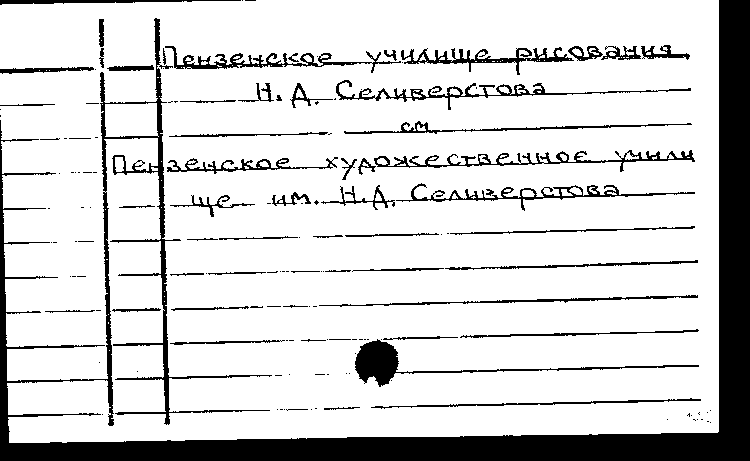 Пензенское училище рисования
Н. Д. Селиверстова
см.
Пензенское художественное учили
ще им. Н. Д. Селиверстова